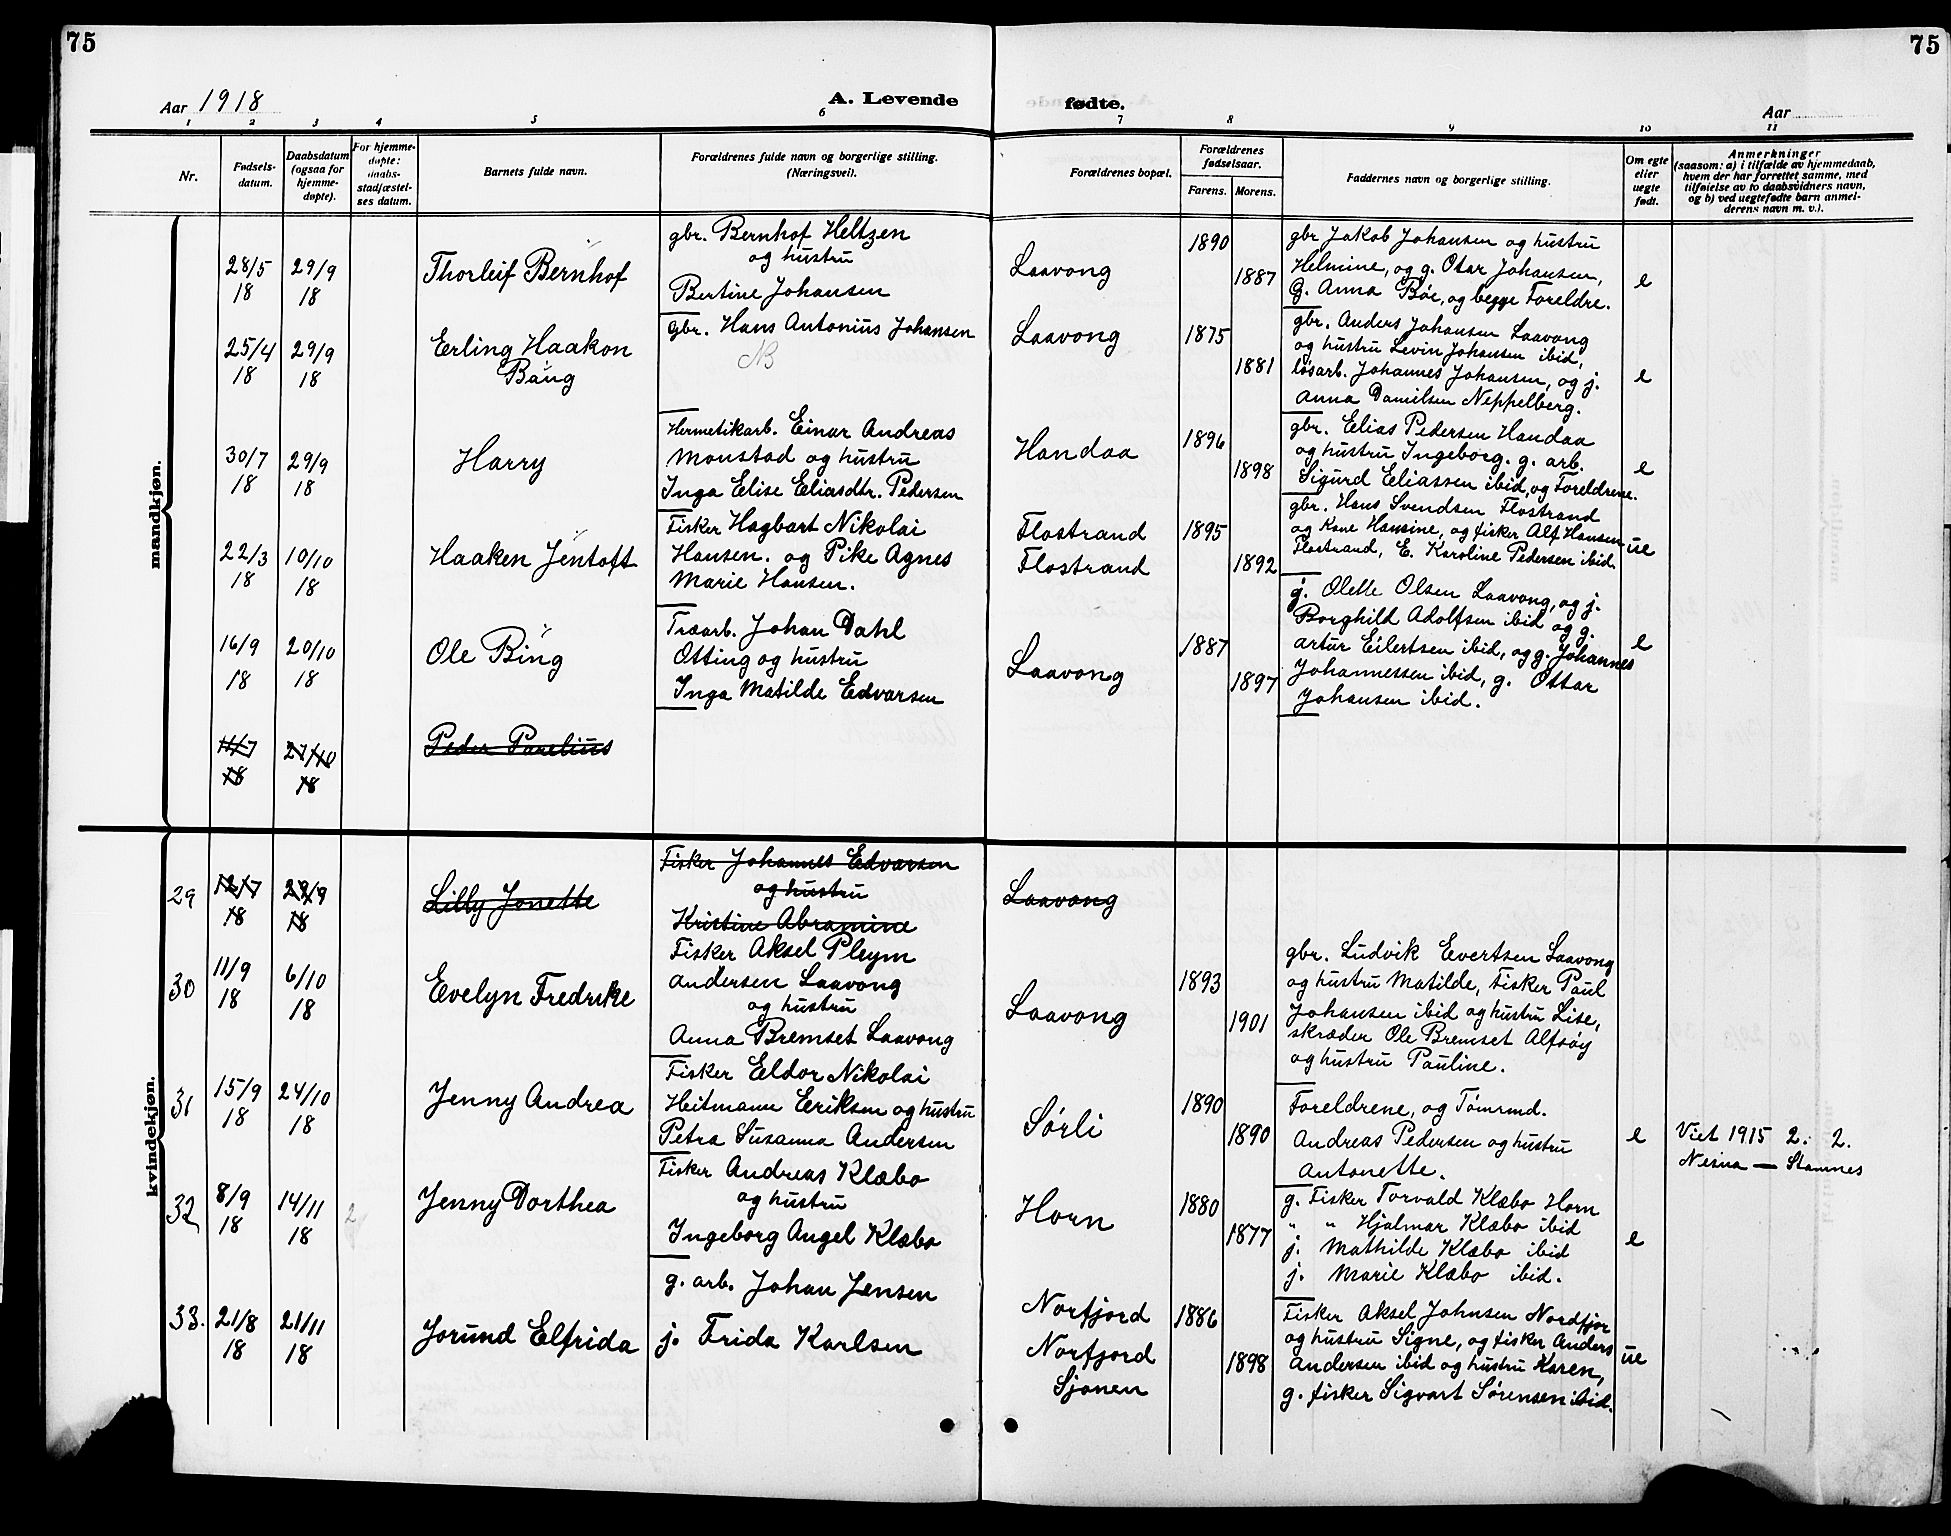 75
75
Aar 1918
A. Levende
fødte.
Aar
1 2 3 4 5 6 7 8 9 10 11
Nr.
Fødsels-
datum.
Daabsdatum
(ogsaa for
hjemme-
døpte).
For hjemme-
døpte:
daabs-
stadfæstel-
ses datum.
Barnets fulde navn.
Forældrenes fulde navn og borgerlige stilling.
(Næringsvei).
Forældrenes bopæl.
Forældrenes
fødselsaar.
Farens. Morens.
Faddernes navn og borgerlige stilling.
Om egte
eller
uegte
født.
Anmerkninger
(saasom: a) i tilfælde av hjemmedaab,
hvem der har forrettet samme, med
tilføielse av to daabsvidners navn,
og b) ved uegtefødte barn anmel-
derens navn m. v.).
mandkjøn.
28/5
18
29/9
18
Thorleif Bernhof
gbr. Bernhof Heltzen
og hustru
Bertine Johansen
Laavong
1890
1887
gbr Jakob Johansen og hustru
Helmine, og g. Otar Johansen,
G. Anna Böe, og begge Foreldre.
e
25/4
18
29/9
18
Erling Haakon
Bang
gbr. Hans Antonius Johansen
NB
Laavong
1875
1881
gbr. Anders Johansen Laavong
og hustru Levin Johansen ibid,
lösarb. Johannes Johansen, og j.
Anna Danielsen Neppelberg.
e
30/7
18
29/9
18
Harry
Hermetikarb. Einar Andreas
Monstad og hustru
Inga Elise Eliasdtr. Pedersen
Handaa
1896
1898
gbr. Elias Pedersen Handaa
og hustru Ingeborg. g. arb.
Sigurd Eliassen ibid, og Foreldrene.
e
22/3
18
10/10
18
Haaken Jentoft
Fisker Hagbart Nikolai
Hansen. og Pike Agnes
Marie Hansen.
Flostrand
Flostrand
1895
1892
gbr. Hans Svendsen Flostrand
og Kone Hansine, og fisker Alf Hansen
Flostrand, E. Karoline Pedersen ibid.
ue
16/9
18
20/10
18
Ole Bing
Træarb. Johan Dahl
Otting og hustru
Inga Matilde Edvarsen
Laavong
1887
1897
j. Olette Olsen Laavong, og j.
Borghild Adolfsen ibid og g.
Artur Eilertsen ibid, og g. Johannes
Johannessen ibid, g. Ottar
Johansen ibid.
e
11/7
18
27/10
18
Peder Parelius
kvindekjøn.
29
12/7
18
29/9
18
Lilly Jonette
Fisker Johannes Edvarsen
og hustru
Kristine Abramine
Laavong
30
11/9
18
6/10
18
Evelyn Fredrike
Fisker Aksel Pleym
Andersen Laavong
og hustru
Anna Bremset Laavong
Laavong
1893
1901
gbr. Ludvik Evertsen Laavong
og hustru Matilde, Fisker Paul
Johansen ibid og hustru Lise,
skræder Ole Bremset Alfsöy
og hustru Pauline.
31
15/9
18
24/10
18
Jenny Andrea
Fisker Eldor Nikolai
Heitmann Eriksen og hustru
Petra Susanna Andersen
Sørli
1890
1890
Foreldrene, og Tömrmd.
Andreas Pedersen og hustru
Antonette.
e
Viet 1915 2. 2.
Nesna — Stamnes
32
8/9
18
14/11
18
2
Jenny Dorthea
Fisker Andreas Klæbo
og hustru
Ingeborg Angel Klæbo
Horn
1880
1877
g. Fisker Torvald Klæbo Horn
" " Hjalmar Klæbo ibid
j. Mathilde Klæbo ibid
j. Marie Klæbo ibid.
e
33.
21/8
18
21/11
18
Jorund Elfrida
g. arb. Johan Jensen
j. Frida Karlsen
Norfjord
Norfjord
Sjonen
1886
1898
Fisker Aksel Johnsen Nordfjor
og hustru Signe, og fisker Anders
Andersen ibid og hustru Karen,
g. fisker Sigvart Sørensen ibid.
ue